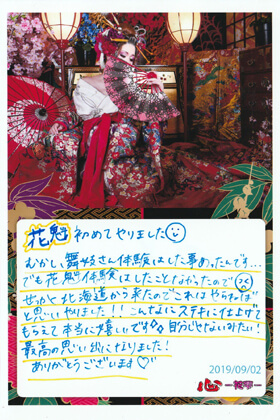 花魁 初めてやりました
むかし、舞妓さん体験はした事あったんです…
でも花魁体験はしたことなかったので
せっかく北海道から来たのでこれはやらねば
と思いやりました!!こんなにステキに仕上げて
もらえて本当に嬉しいです 自分じゃないみたい!
最高の思い出になりました!
ありがとうございます♡
2019/09/02
心